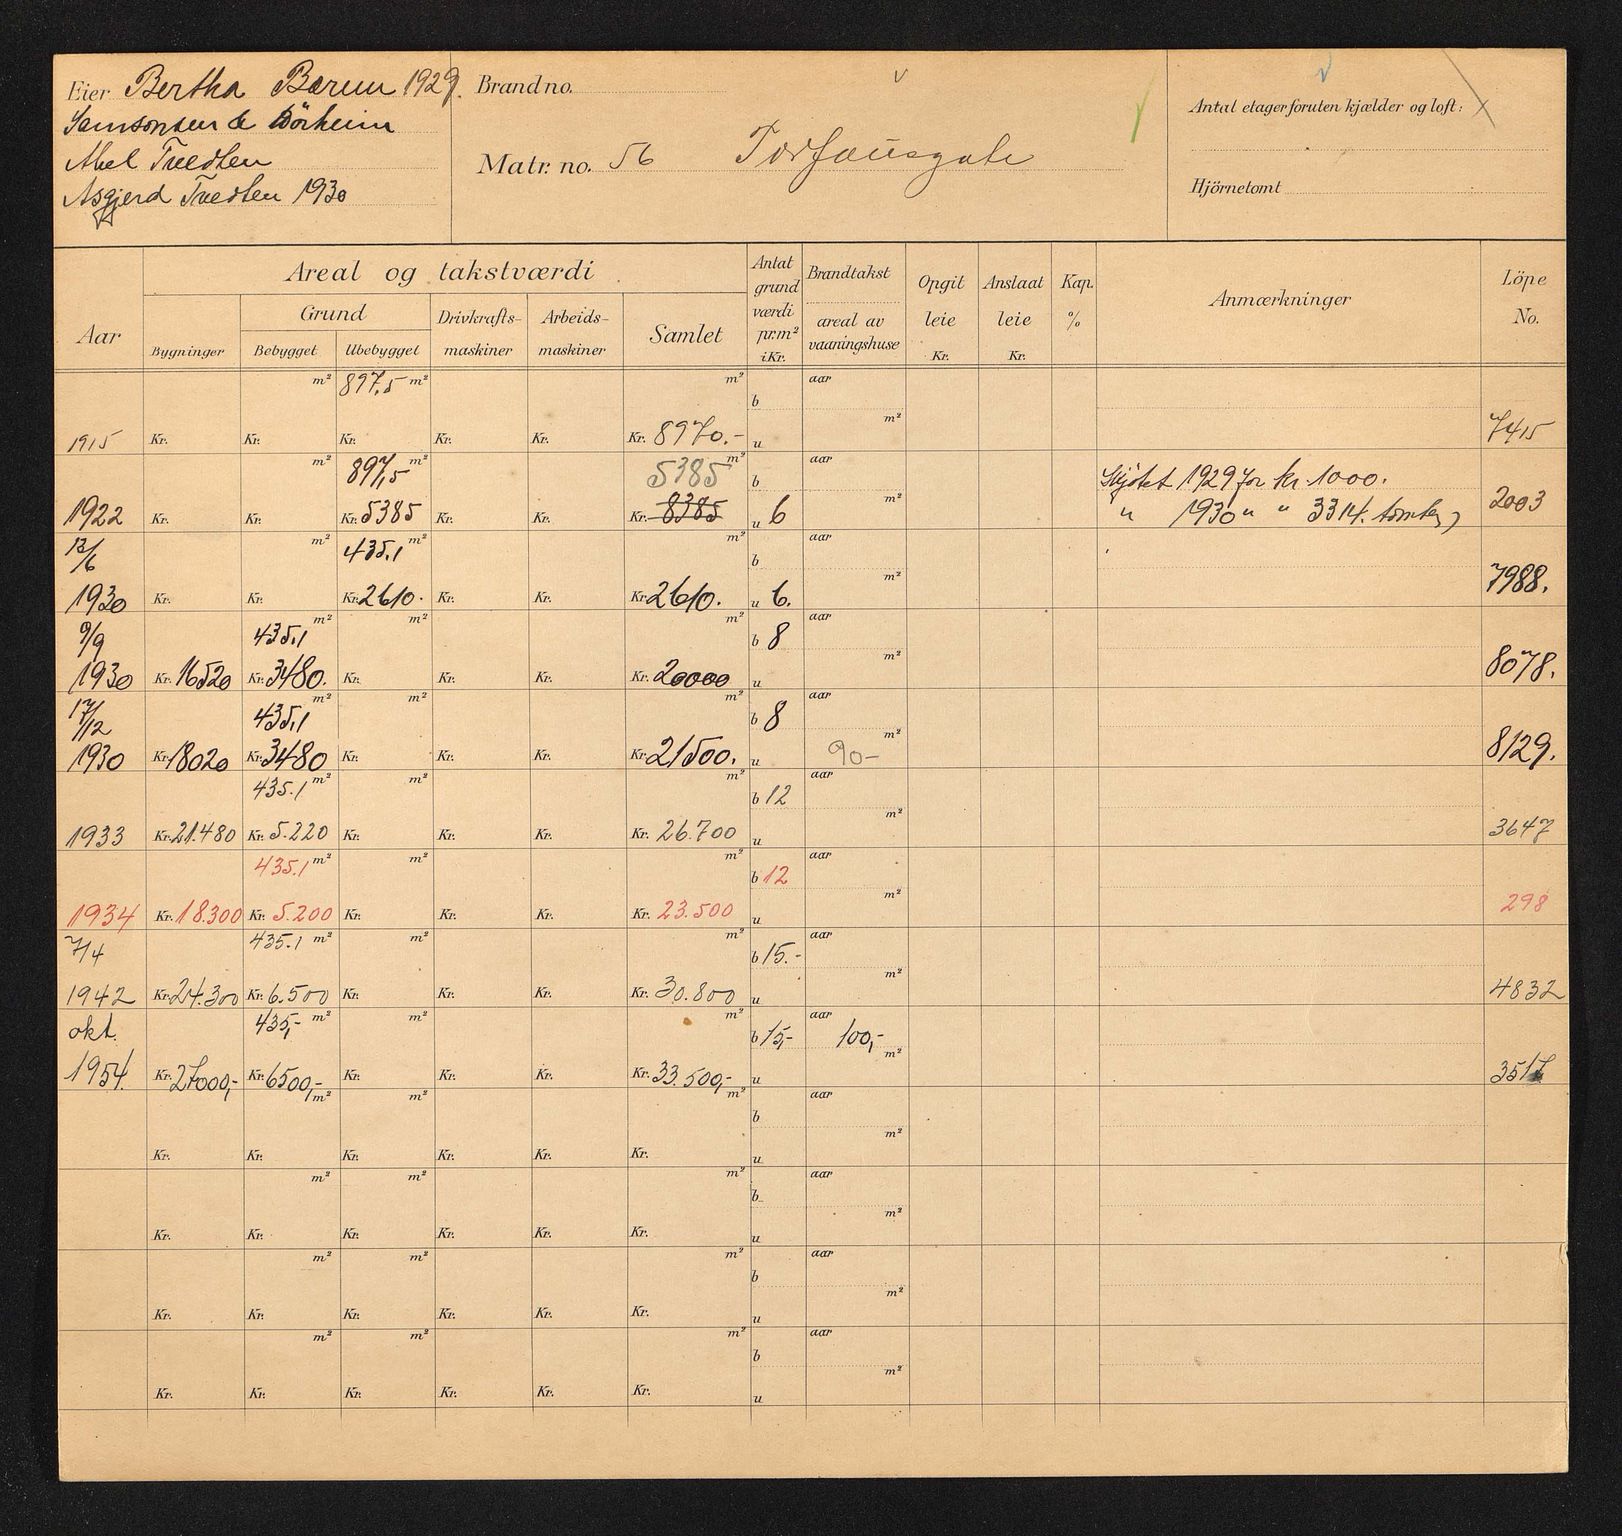 Eier Bertha Barum 1929.
Samsonsen & Börheim
Abel Tvedten
Asgjerd Tvedten 1930
Brand no.
Matr. no. 56 Torfæusgate
Antal etager foruten kjælder og loft:
Hjörnetomt
Aar
Areal og takstværdi
Bygninger
Grund
Bebygget Ubebygget
Drivkrafts-maskiner
Arbeids-maskiner
Samlet
Antat grund værdi pr. m² i Kr.
Brandtakst
areal av vaaningshuse
Opgit leie Kr.
Anslaat leie Kr.
Kap. %
Anmærkninger
Löpe No.
m² 897,5 m² m² b aar m²
1915 Kr. Kr. Kr. Kr. Kr. Kr. 8970.- u 7415
m² 897,5 m² 5385 m² b aar m² Skjötet 1929 for kr. 1000.
1922 Kr. Kr. Kr. 5385 Kr. Kr. Kr. 8385 u 6 " 1930 " " 3314. 2003
13/6 m² 435,1 m² m² b aar m²
1930 Kr. Kr. Kr. 2610. Kr. Kr. Kr. 2610. u 6. 7988.
9/9 435,1 m² m² m² b 8 aar m²
1930 Kr. 16520 Kr. 3480. Kr. Kr. Kr. Kr. 20000 u 8078.
17/12 435,1 m² m² m² b 8 aar m²
1930 Kr. 18020 Kr. 3480 Kr. Kr. Kr. Kr. 21500. u 90- 8129.
435.1 m² m² m² b 12 aar m²
1933 Kr. 21.480 Kr. 5.220 Kr. Kr. Kr. Kr. 26.700 u 3647
435.1 m² m² m² b 12 aar m²
1934 Kr. 18.300 Kr. 5.200 Kr. Kr. Kr. Kr. 23.500 u 298
7/4 435.1 m² m² m² b 15.- aar m²
1942 Kr. 24.300 Kr. 6.500 Kr. Kr. Kr. Kr. 30.800 u 4832
okt. 435,- m² m² m² b 15,- aar 100,- m²
1954. Kr. 27000,- Kr. 6500,- Kr. Kr. Kr. Kr. 33.500,- u 3517
m² m² m² b aar m²
Kr. Kr. Kr. Kr. Kr. Kr. u
m² m² m² b aar m²
Kr. Kr. Kr. Kr. Kr. Kr. u
m² m² m² b aar m²
Kr. Kr. Kr. Kr. Kr. Kr. u
m² m² m² b aar m²
Kr. Kr. Kr. Kr. Kr. Kr. u